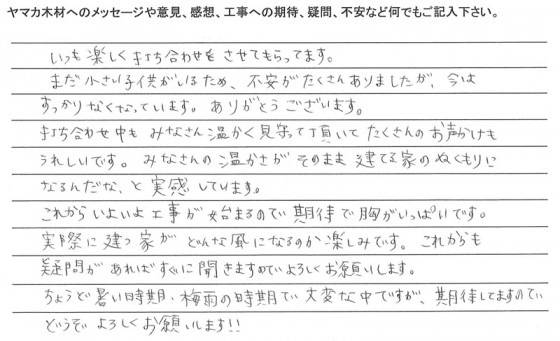 ヤマカ木材へのメッセージや意見、感想、工事への期待、疑問、不安など何でもご記入下さい。
いつも楽しく打ち合わせをさせてもらってます。
まだ小さい子供がいるため、不安がたくさんありましたが、今は
すっかりなくなっています。ありがとうございます。
打ち合わせ中も みなさん温かく見守って頂いて たくさんのお声かけも
うれしいです。みなさんの温かさが そのまま 建てる家のぬくもりに
なるんだな、と実感しています。
これからいよいよ工事が始まるので 期待で胸がいっぱいです。
実際に建つ家が どんな風になるのか楽しみです。これからも
疑問があればすぐに聞きますのでよろしくお願いします。
ちょうど暑い時期・梅雨の時期で大変な中ですが、期待してますので
どうぞ よろしくお願いします!!